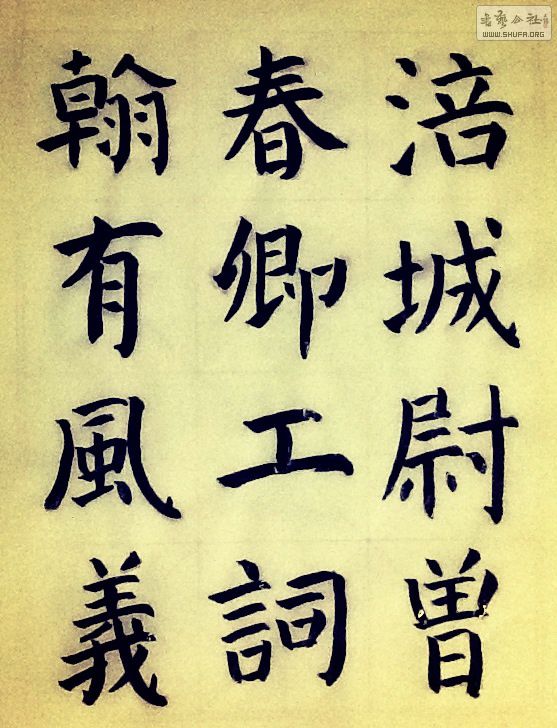 涪城尉曽
春卿工詞
翰有風義
书艺公社
WWW.SHUFA.ORG